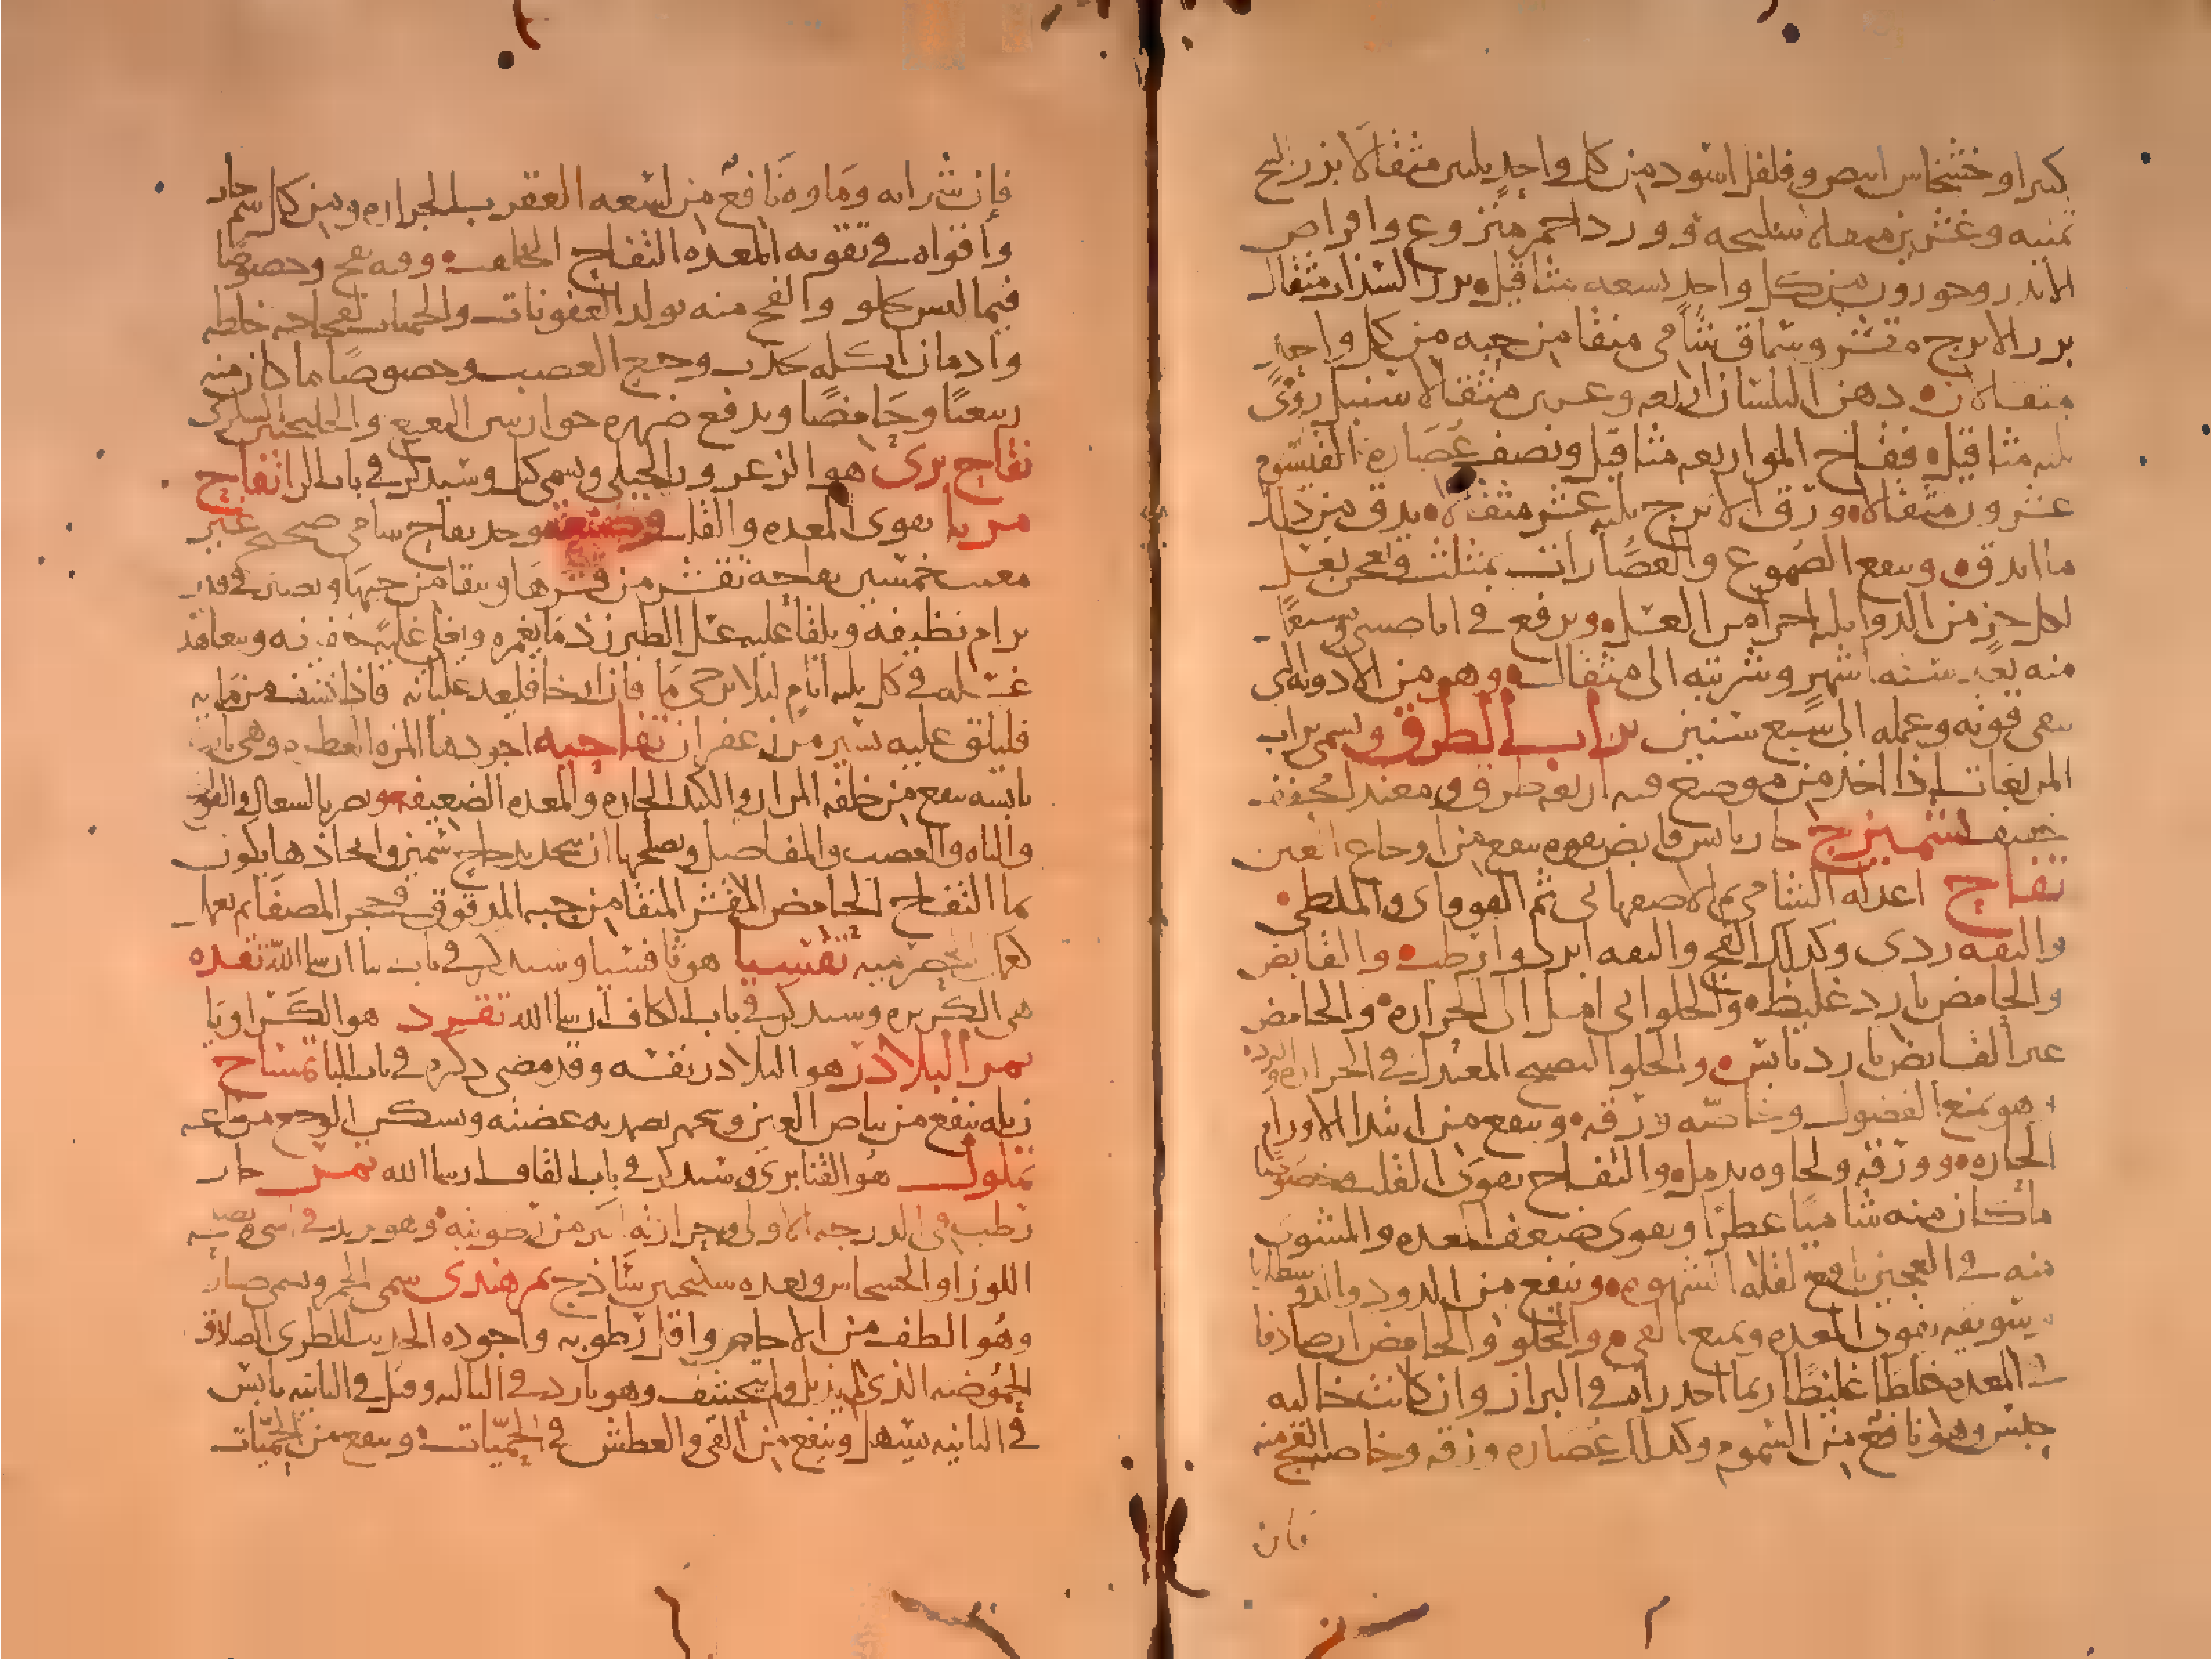 كثيرا وخشخاش ابيض وفلفل اسود من كل واحد مثقالا بزر
ثمنيه وعشرين سليخه وورد احمر منزوع واقراص
الاندروخورون من كل واحد تسعه مثاقيل بزر السذاب مثقال
بزر الاترج مقشر وسماق شامي منقا من حبه من كل واحد
مثقالان دهن البلسان اربعه وعشرين مثقالا سنبل رومي
ثلثه مثاقيل فقاح المو اربعه مثاقيل ونصف عصارة القيسوم
عشرون مثقالا ورق الاترج ثلثه عشر مثقالا يدق من ذلك
ما اندق وينقع الصموغ والعصارات بمثلث ويعجن بعسل
لكل جز من الدوا ثلثه اجزا من العسل ويرفع في انا صيني ويستعمل
منه بعد سته اشهر وشربته الى مثقال وهو من الادويه التي
تبقى قوته وعمله الى سبع سنين تراب الطرق ويسمى تراب
المربعات اذا اخذ من موضع فيه اربعه طرق ومعتدل مجفف
خفيف تشميزج حار يابس قابض بقوه ينفع من اوجاع العين
تفاح اعدله الشامي ثم الاصفهاني ثم القوقاي والملطي
والتفه ردي وكذلك الفج والتفه ابرد وارطب والقابض
والحامض بارد غليظ والحلو الى اميل الى الحراره والحامض
غير القابض بارد يابس والحلو النضيج المعتدل في الحراره والبرد
هو يمنع الفضول وخاصه ورقه وينفع من ابتدا الاورام
الحاره وورقه ولحاوه يدمل والتفاح يقوي القلب خصوصا
ما كان منه شاميا عطرا ويقوي ضعف المعده والمشوي
منه في العجين نافع لقله الشهوه وينفع من الدود والدوسنطاريا
سويقه يقوي المعده ويمنع القي والحلو والحامض ان صادفا
في المعده خلطا غليظا ربما احدراه في البراز وان كانت خاليه
حبس وهو نافع من السموم وكذلك عصاره ورقه وخاصه الفج منه
فان
فان شرابه وماوه نافع من لسعه العقرب الجراره ومن كل سم حار
واقواه في تقويه المعده التفاح وفيه نفخ وخصوصا
فيما ليس بحلو والفج منه يولد العفونات والحميات لفجاجه خلطه
وادمان اكله يحدث وجع العصب وخصوصا ما كان منه
ربيعيا وحامضا ويدفع ضرره جوارش النعنع والجلنجبين السكري
تفاح بري هو الزعرور الجبلي ويسمى كيل وسيذكر في باب الزا تفاح
مربا يقوي المعده والقلب وصنعته يوخذ تفاح شامي صحيح غير
معيب خمسين تفاحه تقشر من قشرها وينقا من حبها ويصير في قدر
برام نظيفه ويلقا عليه عسل الطبرزذ ما يغمره ويغلي غليه خفيفه ويتعاهد
غسله في كل ثلثه ايام ليلا يرخي ما فان ارخا فليعد غليانه فاذا نشف من مايه
فليلق عليه يسير من زعفران تفاحيه اجودها المزه العطره وهي بارده
يابسه ينفع من خلفه المرار والكبد الحاره والمعده الضعيفه ويضر بالسعال
والباه والعصب والمفاصل ويصلحها ان يتخذ بدجاج سمين واتخاذها يكون
بما التفاح الحامض المقشر المنقا من حبه المدقوق في حجر المصفا ثم يعمل
كعمل الحصرميه تفسيا هو ثافسيا وسيذكر في باب ثا ان شا الله تقده
هي الكزبره وسيذكر في باب الكاف ان شا الله تقرد هو الكراويا
تمر البلاذر هو البلاذر نفسه وقد مضى ذكره في باب البا تمساح
زبله ينفع من بياض العين وشحمه يضمد به عضته ويسكن الوجع من ساعته
تملول هو القنابري وسيذكر في باب القاف ان شا الله تمر حار
رطب في الدرجه الاولى وحرارته اكثر من رطوبته وهو يزيد في المني
اللوز او الخشخاش وبعده سكنجبين ساذج تمر هندي يسمى الحمر ويسمى صبار
وهو الطف من الاجاص واقل رطوبه واجوده الحديث الطري الصادق
الحموضه الذي لم يذبل ولم يتحشف وهو بارد في الثالثه وقيل في الثانيه يابس
في الثانيه يسهل وينفع من القي والعطش في الحميات وينفع من الحميات